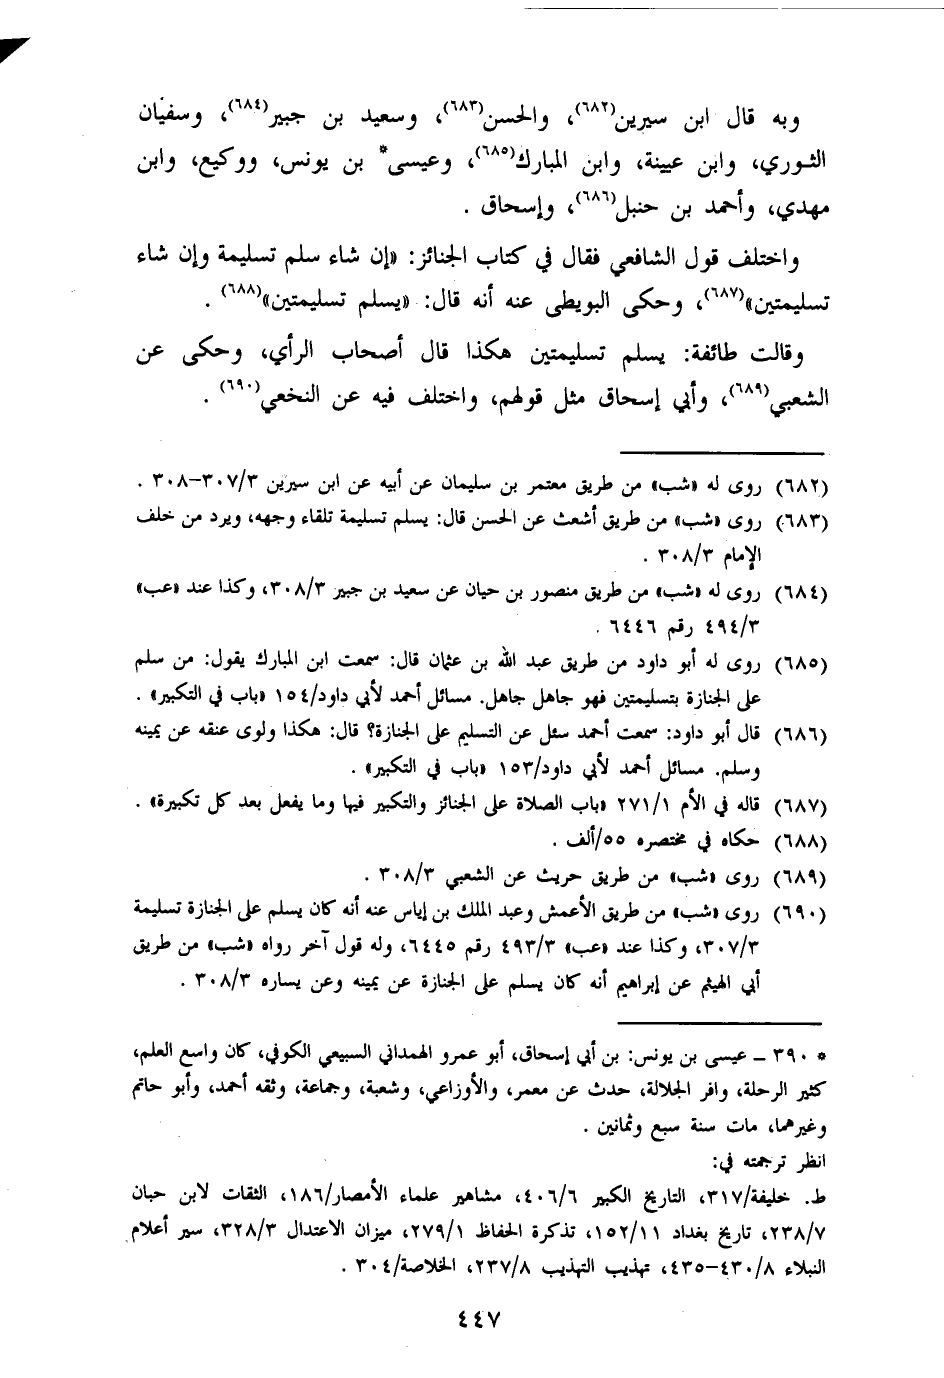 وبه قال ابن سيرين(٦٨٢)، والحسن(٦٨٣)، وسعيد بن جبير(٦٨٤)، وسفيان
الثوري، وابن عيينة، وابن المبارك(٦٨٥)، وعيسى* بن يونس، ووكيع، وابن
مهدي، وأحمد بن حنبل(٦٨٦)، وإسحاق .
واختلف قول الشافعي فقال في كتاب الجنائز: «إن شاء سلم تسليمة وإن شاء
تسليمتين»(٦٨٧)، وحكى البويطى عنه أنه قال: «يسلم تسليمتين»(٦٨٨) .
وقالت طائفة: يسلم تسليمتين هكذا قال أصحاب الرأي، وحكى عن
الشعبي(٦٨٩)، وأبي إسحاق مثل قولهم، واختلف فيه عن النخعي(٦٩٠) .
(٦٨٢) روى له «شب» من طريق معتمر بن سليمان عن أبيه عن ابن سيرين ٣/‏٣٠٧–٣٠٨ .
(٦٨٣) روى «شب» من طريق أشعث عن الحسن قال: يسلم تسليمة تلقاء وجهه، ويرد من خلف
الإمام ٣/‏٣٠٨ .
(٦٨٤) روى له «شب» من طريق منصور بن حيان عن سعيد بن جبير ٣/‏٣٠٨، وكذا عند «عب»
٣/‏٤٩٤ رقم ٦٤٤٦ .
(٦٨٥) روى له أبو داود من طريق عبد الله بن عثمان قال: سمعت ابن المبارك يقول: من سلم
على الجنازة بتسليمتين فهو جاهل جاهل. مسائل أحمد لأبي داود/‏١٥٤ «باب في التكبير» .
(٦٨٦) قال أبو داود: سمعت أحمد سئل عن التسليم على الجنازة؟ قال: هكذا ولوى عنقه عن يمينه
وسلم. مسائل أحمد لأبي داود/‏١٥٣ «باب في التكبير» .
(٦٨٧) قاله في الأم ١/‏٢٧١ «باب الصلاة على الجنائز والتكبير فيها وما يفعل بعد كل تكبيرة» .
(٦٨٨) حكاه في مختصره ٥٥/ألف .
(٦٨٩) روى «شب» من طريق حريث عن الشعبي ٣/‏٣٠٨ .
(٦٩٠) روى «شب» من طريق الأعمش وعبد الملك بن إياس عنه أنه كان يسلم على الجنازة تسليمة
٣/‏٣٠٧، وكذا عند «عب» ٣/‏٤٩٣ رقم ٦٤٤٥، وله قول آخر رواه «شب» من طريق
أبي الهيثم عن إبراهيم أنه كان يسلم على الجنازة عن يمينه وعن يساره ٣/‏٣٠٨ .
* ٣٩٠ – عيسى بن يونس: بن أبي إسحاق، أبو عمرو الهمداني السبيعي الكوفي، كان واسع العلم،
كثير الرحلة، وافر الجلالة، حدث عن معمر، والأوزاعي، وشعبة، وجماعة، وثقه أحمد، وأبو حاتم
وغيرهما، مات سنة سبع وثمانين .
انظر ترجمته في:
ط. خليفة/‏٣١٧، التاريخ الكبير ٦/‏٤٠٦، مشاهير علماء الأمصار/‏١٨٦، الثقات لابن حبان
٧/‏٢٣٨، تاريخ بغداد ١١/‏١٥٢، تذكرة الحفاظ ١/‏٢٧٩، ميزان الاعتدال ٣/‏٣٢٨، سير أعلام
النبلاء ٨/‏٤٣٠–٤٣٥، تهذيب التهذيب ٨/‏٢٣٧، الخلاصة/‏٣٠٤ .
٤٤٧